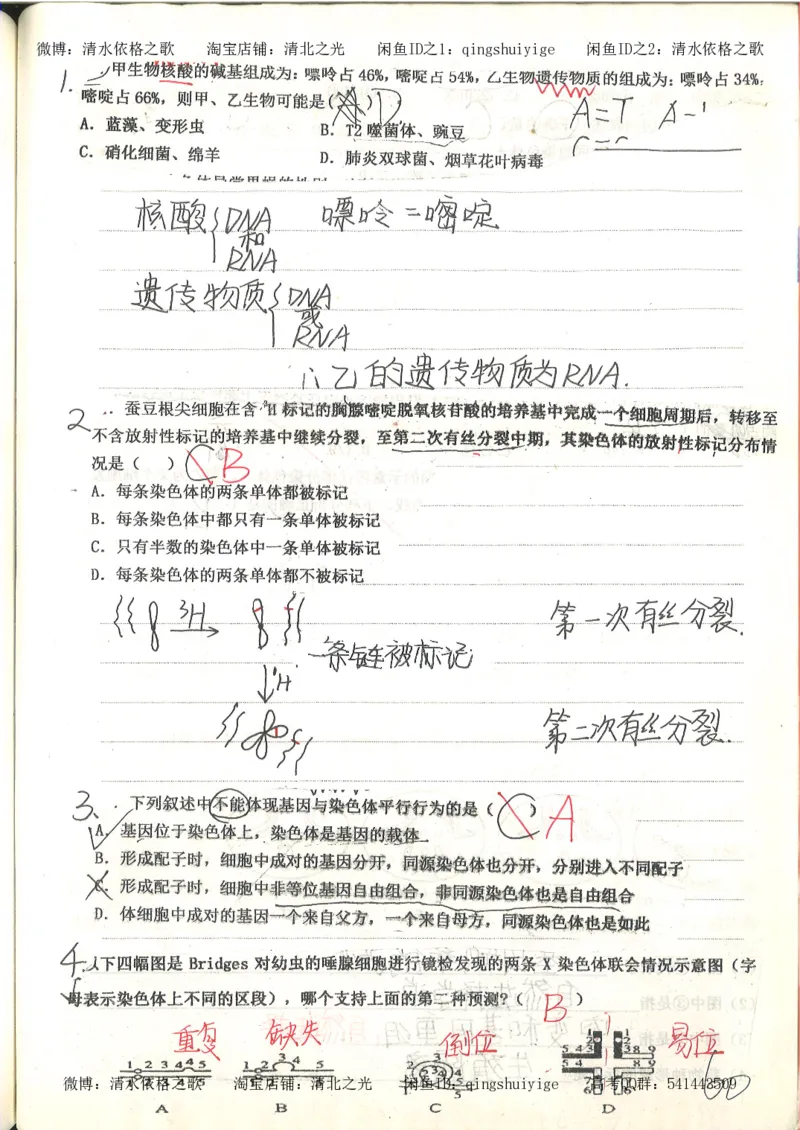 微博：清水依格之歌 淘宝店铺：清北之光 闲鱼ID之1：qingshuiyige 闲鱼ID之2：清水依格之歌
1. 甲生物核酸的碱基组成为：嘌呤占 46%，嘧啶占 54%，乙生物遗传物质的组成为：嘌呤占 34%，
嘧啶占 66%，则甲、乙生物可能是（ ）D
A=T A-
A．蓝藻、变形虫 B．T2 噬菌体、豌豆
C．硝化细菌、绵羊 D．肺炎双球菌、烟草花叶病毒
核酸 DNA 嘌呤=嘧啶
和
RNA
遗传物质 DNA
或
RNA
∴乙的遗传物质为RNA.
2 蚕豆根尖细胞在含 ³H 标记的胸腺嘧啶脱氧核苷酸的培养基中完成一个细胞周期后，转移至
不含放射性标记的培养基中继续分裂，至第二次有丝分裂中期，其染色体的放射性标记分布情
况是（ ） B
A．每条染色体的两条单体都被标记
B．每条染色体中都只有一条单体被标记
C．只有半数的染色体中一条单体被标记
D．每条染色体的两条单体都不被标记
³H 第一次有丝分裂.
一条链被标记
¹H
第二次有丝分裂.
3、 下列叙述中不能体现基因与染色体平行行为的是（ ） A
A．基因位于染色体上，染色体是基因的载体
B．形成配子时，细胞中成对的基因分开，同源染色体也分开，分别进入不同配子
C．形成配子时，细胞中非等位基因自由组合，非同源染色体也是自由组合
D．体细胞中成对的基因一个来自父方，一个来自母方，同源染色体也是如此
4. 以下四幅图是 Bridges 对幼虫的唾腺细胞进行镜检发现的两条 X 染色体联会情况示意图（字
母表示染色体上不同的区段），哪个支持上面的第二种预测？（ B ）
重复 缺失 倒位 易位
1 2 3 4 4 5 1 2 3 4 5
微博：清水依格之歌 淘宝店铺：清北之光 闲鱼ID：qingshuiyige 高考QQ群：541443509
A B C D
60